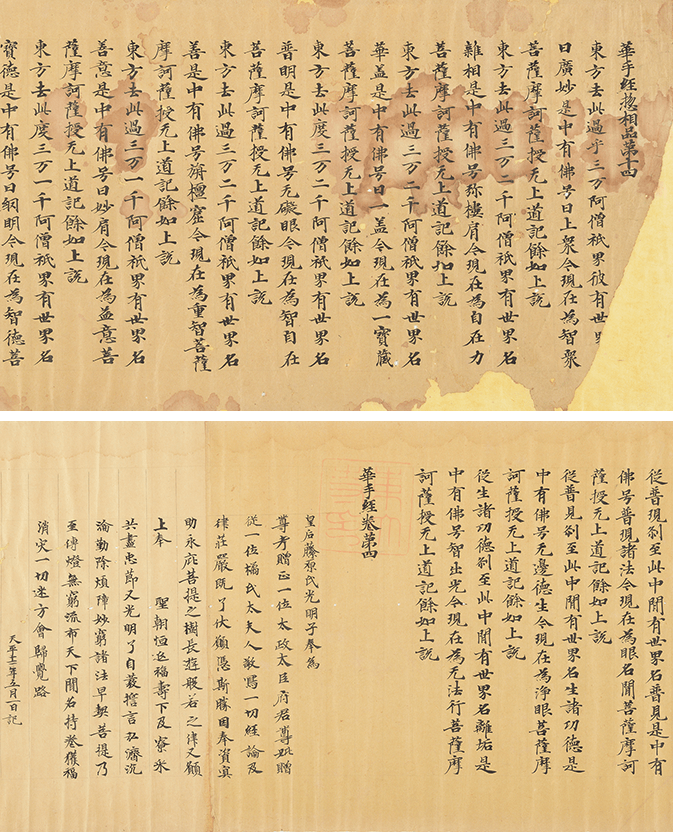 華手經揔相品第十四
東方去此過于三万阿僧祇界彼有世界
曰廣妙是中有佛号曰上衆今現在為智衆
菩薩摩訶薩授无上道記餘如上說
東方去此過三万二千阿僧祇界有世界名
離相是中有佛号弥樓肩今現在為自在力
菩薩摩訶薩授无上道記餘如上說
東方去此過三万二千阿僧祇界有世界名
華盖是中有佛号曰一盖今現在為一寳藏
菩薩摩訶薩授无上道記餘如上說
東方去此度三万二千阿僧祇界有世界名
普明是中有佛号无礙眼今現在為智自在
菩薩摩訶薩授无上道記餘如上說
東方去此過三万二千阿僧祇界有世界名
善是中有佛号旃檀窟今現在為重智菩薩
摩訶薩授无上道記餘如上說
東方去此過三万一千阿僧祇界有世界名
善意是中有佛号曰妙肩今現在為益意菩
薩摩訶薩授无上道記餘如上說
東方去此度三万一千阿僧祇界有世界名
寳德是中有佛号曰網明今現在為智德菩
從普現刹至此中間有世界名普見是中有
佛号普現諸法今現在為眼名聞菩薩摩訶
薩授无上道記餘如上說
從普見刹至此中間有世界名生諸功德是
中有佛号无邊德生今現在為淨眼菩薩摩
訶薩授无上道記餘如上說
從生諸功德刹至此中間有世界名離垢是
中有佛号智止光今現在為无法行菩薩摩
訶薩授无上道記餘如上說
華手經卷第四
皇后藤原氏光明子奉為
尊考贈正一位太政太臣府君尊妣贈
從一位橘氏太夫人敬寫一切經論及
律莊嚴既了伏願憑斯勝因奉資冥
助永庇菩提之樹長遊般若之津又願
上奉 聖朝恒延福壽下及寮采
共盡忠節又光明子自發誓言弘濟沉
淪勤除煩障妙窮諸法早契菩提乃
至傳燈無窮流布天下聞名持卷獲福
消灾一切迷方會歸覺路
天平十二年五月一日記